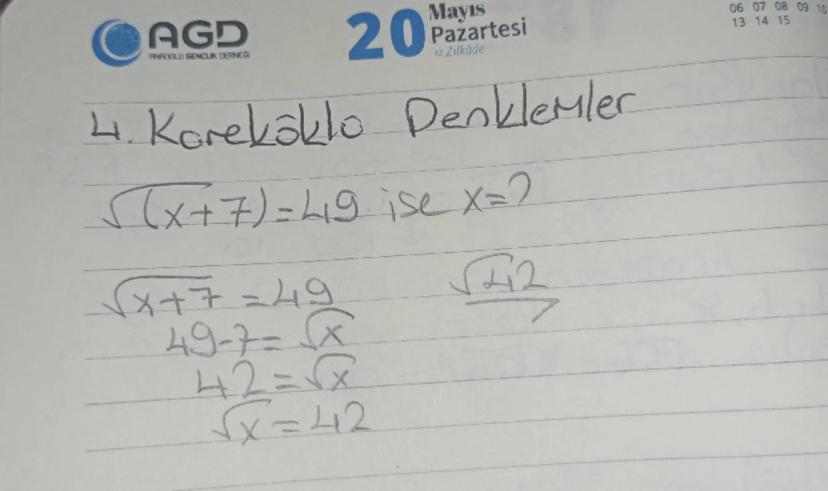 AGD
ANADOLU GENÇLİK DERNEĞİ
20 Mayıs
Pazartesi
12 Zilkâde
06 07 08 09 10
13 14 15
4. Kareköklo Denklemler
√(x+7)=49 ise x=?
√x+7 = 49
√42
49-7=√x
42=√x
√x=42